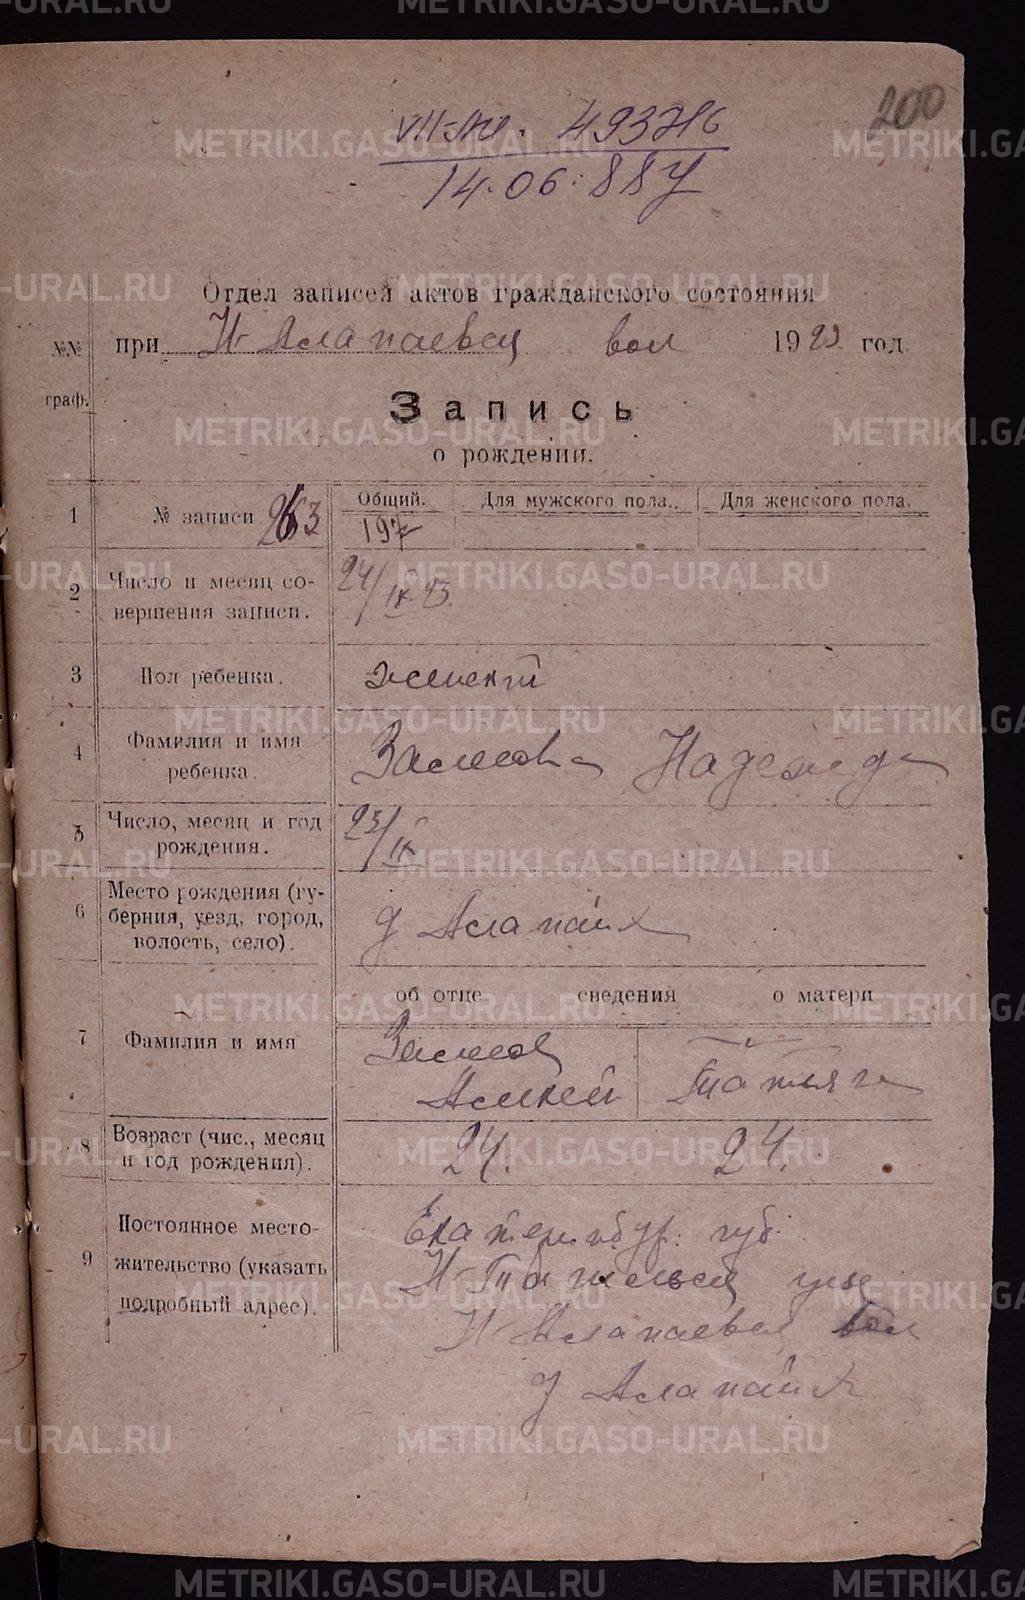 200
VII-АИ. 493716
14.06.88г
Отдел записей актов гражданского состояния
№№ граф.
при Н-Алапаевск вол 1923 год.
Запись
о рождении.
1 № записи 263 Общий. 197 Для мужского пола. Для женского пола.
2 Число и месяц со-
вершения записи. 24/IX 23.
3 Пол ребенка. женск
4 Фамилия и имя
ребенка. Надежда
5 Число, месяц и год
рождения. 23/IX
6 Место рождения (гу-
берния, уезд, город,
волость, село). д Алапаиха
об отце сведения о матери
7 Фамилия и имя
Татьяна
8 Возраст (чис., месяц
и год рождения). 24. 24.
9 Постоянное место-
жительство (указать
подробный адрес).
Екатеринбур. губ.
Н-Тагильск уез
Н-Алапаевск вол
д Алапаиха
METRIKI.GASO-URAL.RU